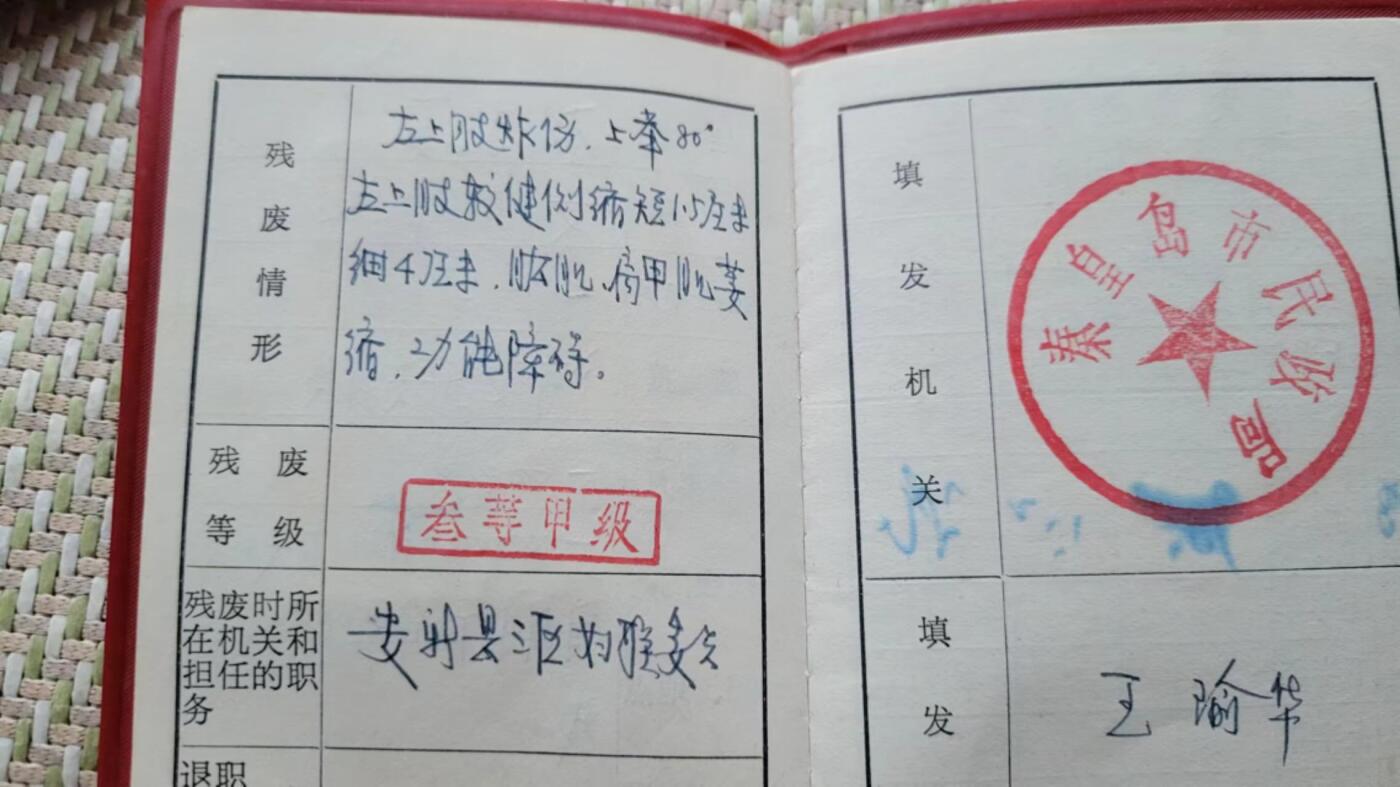 残废情形
左上肢炸伤.上举80°
左上肢较健侧缩短1.5厘米
细4厘米.肱肌、肩甲肌萎
缩、功能障碍。
残废
等级
叁等甲级
残废时所
在机关和
担任的职
务
县三区
退职
填发机关
秦皇岛市民政局
填发
王瑜华